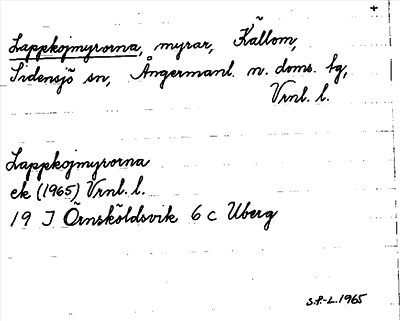 +
Lappkojmyrorna, myrar, Källom,
Sidensjö sn, Ångermanl. n. doms. fg,
Vrnl. l.
Lappkojmyrorna
ek (1965) Vrnl. l.
19 J Örnsköldsvik 6 c Uberg
S.P-L. 1965